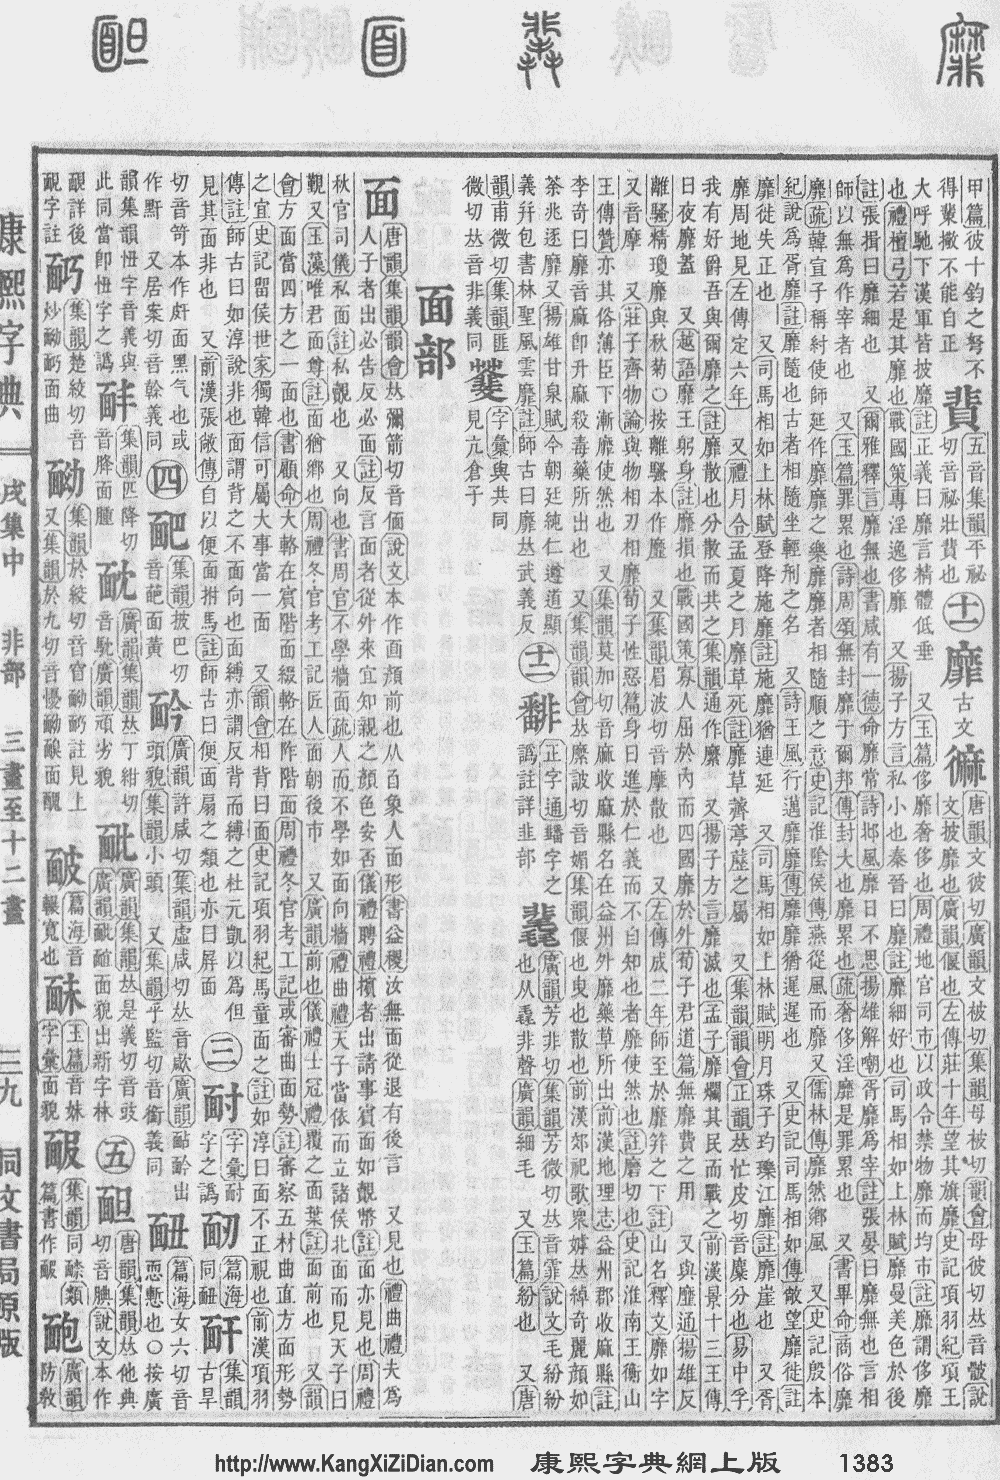 甲篇彼十鈞之弩不
得排檠不能自正
靟
五音集韻平祕
切音祕壯靟也
十一
靡
古文
唐韻文彼切廣韻文被切集韻母被切韻會母彼切𠀤音骳說
文披靡也廣韻偃也左傳莊十年望其旗靡史記項羽紀項王
大呼馳下漢軍皆披靡註正義曰靡言精體低垂 又玉篇侈靡奢侈也周禮地官司市以政令禁物靡而均市註靡謂侈靡
也禮檀弓若是其靡也戰國策專淫逸侈靡 又揚子方言私小也秦晉曰靡註靡細好也司馬相如上林賦靡曼美色於後
註張揖曰靡細也 又爾雅釋言靡無也書咸有一德命靡常詩邶風靡日不思揚雄解嘲胥靡為宰註張晏曰靡無也言相
師以無為作宰者也 又玉篇罪累也詩周頌無封靡于爾邦傳封大也靡累也疏奢侈淫靡是罪累也 又書畢命商俗靡
靡疏韓宣子稱紂使師延作靡靡之樂靡靡者相隨順之意史記淮陰侯傳燕從風而靡又儒林傳靡然鄉風 又史記殷本
紀說為胥靡註靡隨也古者相隨坐輕刑之名 又詩王風行邁靡靡傳靡靡猶遲遲也 又史記司馬相如傳敞望靡徙註
靡徙失正也 又司馬相如上林賦登降施靡註施靡猶連延 又司馬相如上林賦明月珠子玓瓅江靡註靡崖也 又胥
靡周地見左傳定六年 又禮月令孟夏之月靡草死註靡草薺葶藶之屬 又集韻韻會正韻𠀤忙皮切音糜分也易中孚
我有好爵吾與爾靡之註靡散也分散而共之集韻通作縻 又揚子方言靡滅也孟子靡爛其民而戰之前漢景十三王傳
日夜靡蓋 又越語靡王躬身註靡損也戰國策寡人屈於內而四國靡於外荀子君道篇無靡費之用 又與𪎭通揚雄反
離騷精瓊靡與秋菊○按離騷本作爢 又集韻眉波切音摩散也 又左傳成二年師至於靡筓之下註山名釋文靡如字
又音摩 又莊子齊物論與物相刃相靡荀子性惡篇身日進於仁義而不自知也者靡使然也註磨切也史記淮南王衡山
王傳贊亦其俗薄臣下漸靡使然也 又集韻莫加切音麻收靡縣名在益州外靡藥草所出前漢地理志益州郡收靡縣註
李奇曰靡音麻卽升麻殺毒藥所出也 又集韻韻會𠀤縻詖切音媚集韻偃也曳也散也前漢郊祀歌衆嫭𠀤綽奇麗顏如
荼兆逐靡又揚雄甘泉賦今朝廷純仁遵道顯
義幷包書林聖風雲靡註師古曰靡𠀤武義反
十二
䨽
正字通䨽字之
譌註詳韭部
䨾
廣韻芳非切集韻芳微切𠀤音霏說文毛紛紛
也从毳非聲廣韻細毛 又玉篇紛也 又唐
韻甫微切集韻匪
微切𠀤音非義同
字彙與共同
見亢倉子
面部
面
唐韻集韻韻會𠀤彌箭切音偭說文本作𠚑顏前也从𦣻象人面形書益稷汝無面從退有後言 又見也禮曲禮夫為
人子者出必告反必面註反言面者從外來宜知親之顏色安否儀禮聘禮擯者出請事賓面如覿幣註面亦見也周禮
秋官司儀私面註私覿也 又向也書周官不學牆面疏人而不學如面向牆禮曲禮天子當依而立諸侯北面而見天子曰
覲又玉藻唯君面尊註面猶鄉也周禮冬官考工記匠人面朝後市 又廣韻前也儀禮士冠禮覆之面葉註面前也 又韻
會方面當四方之一面也書顧命大輅在賓階面綴輅在阼階面周禮冬官考工記或審曲面勢註審察五材曲直方面形勢
之宜史記留侯世家獨韓信可屬大事當一面 又韻會相背曰面史記項羽紀馬童面之註如淳曰面不正視也前漢項羽
傳註師古曰如淳說非也面謂背之不面向也面縛亦謂反背而縛之杜元凱以為但
見其面非也 又前漢張敞傳自以便面拊馬註師古曰便面扇之類也亦曰屏面
三
耐
字彙耐
字之譌
靭
篇海
同䩄
奸
集韻
古旱
切音笴本作皯面黑气也或
作䵟 又居案切音榦義同
四
䩃
集韻披巴切
音葩面黃
䶃
廣韻許咸切集韻虛咸切𠀤音歁廣韻䩏䶃出
頭貌集韻小頭 又集韻乎監切音銜義同
䩄
篇海女六切音
恧慙也○按廣
韻集韻忸字音義與
此同當卽忸字之譌
集韻匹降切
音胮面腫
廣韻集韻𠀤丁紺切
音馾廣韻頑劣貌
廣韻集韻𠀤是義切音豉
廣韻 面貌出新字林
五
䩅
唐韻集韻𠀤他典
切音腆說文本作
靦詳後
靦字註
集韻楚絞切音
炒䩌 面曲
䩌
集韻於絞切音 䩌 註見上
又集韻於九切音懮䩌䩔面醜
䩎
篇海音
䩎寬也
玉篇音妹
字彙面貌
集韻同䤅類
篇書作䩇
靤
廣韻
防敎
康熙字典
戌集中
非部
三畫至十二畫
三九
同文書局原版
http://www.KangXiZiDian.com 康熙字典網上版 1383